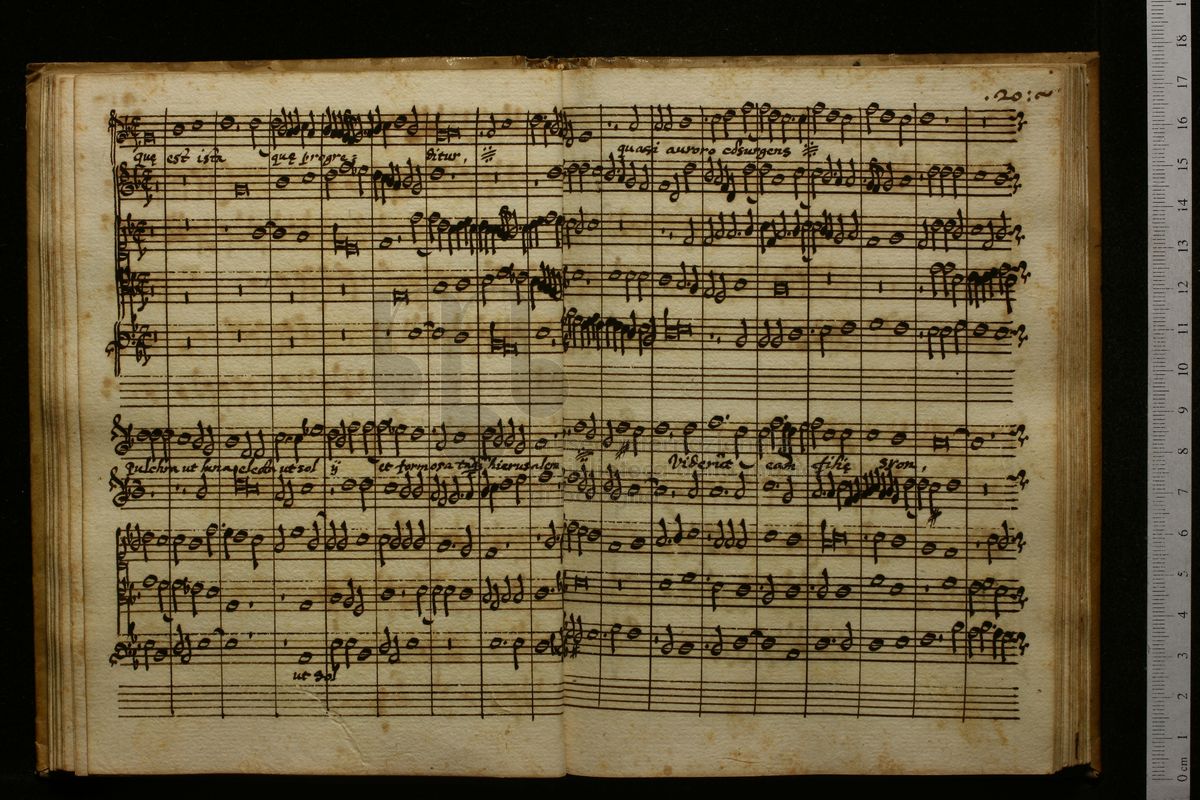 .20:~
quę est ista quę progre= ditur, quasi aurora cōsurgens
pulchra ut luna electa ut sol ij et formosa hierusalem Viderūt eam filię syon,
ut sol
0 cm 1 2 3 4 5 6 7 8 9 10 11 12 13 14 15 16 17 18